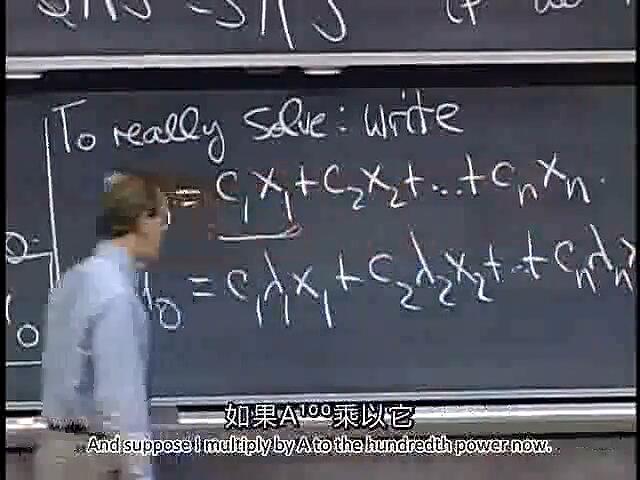 To really solve: write
= c₁x₁ + c₂x₂ + ... + cₙxₙ.
₀ = c₁λ₁x₁ + c₂λ₂x₂ + ... + cₙλₙx
如果A¹⁰⁰乘以它
And suppose I multiply by A to the hundredth power now.